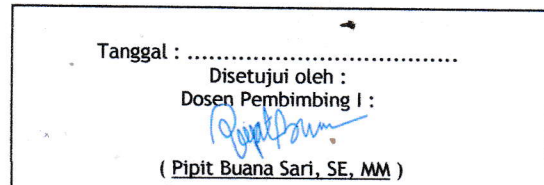 Tanggal : ....................................
Disetujui oleh :
Dosen Pembimbing I :
( Pipit Buana Sari, SE, MM )